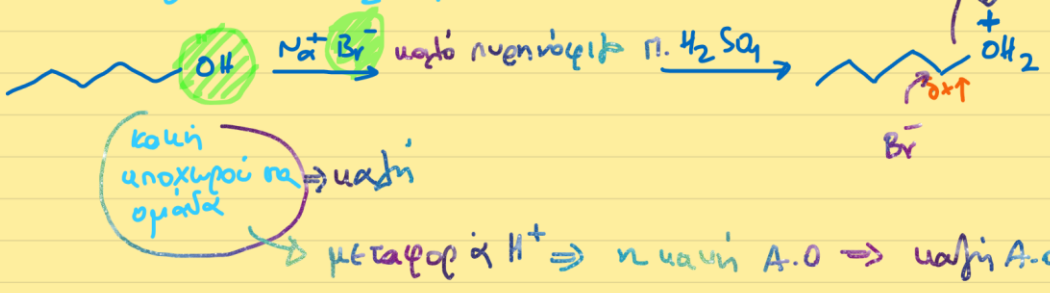 OH Na⁺ Br⁻ καλό πυρηνόφιλο π. H₂SO₄ ⁺OH₂
δ+↑
Br⁻
κακή
αποχωρούσα ⇒ καλή
ομάδα
μεταφορά H⁺ ⇒ η κακή Α.Ο → καλή Α.